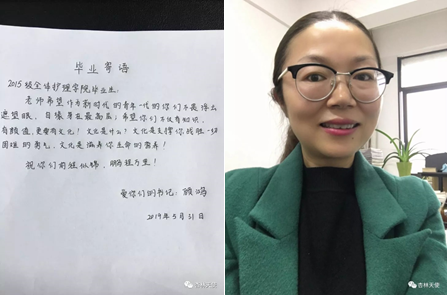 毕业寄语
2015级全体护理学院毕业生:
老师希望作为新时代的青年一代的你们不畏浮云
遮望眼,自缘身在最高层;希望你们不仅有知识,
有颜值,更要有文化!文化是什么?文化是支撑你战胜一切
困难的勇气,文化是滋养你生命的营养!
祝你们前程似锦,鹏程万里!
爱你们的书记:
2019年5月31日
杏林天使
杏林天使